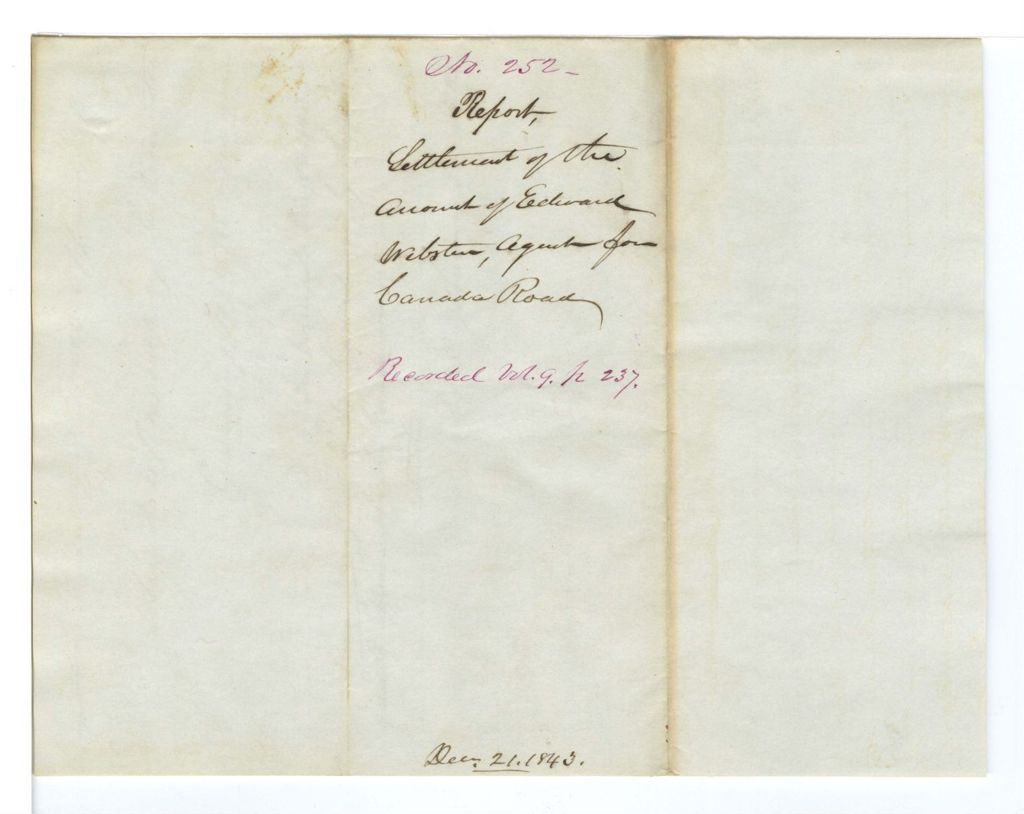 No. 252-
Report,
Settlement of the
Account of Edward
Webster, Agent for
Canada Road
Recorded Vol. 9. p 237.
Dec. 21. 1843.